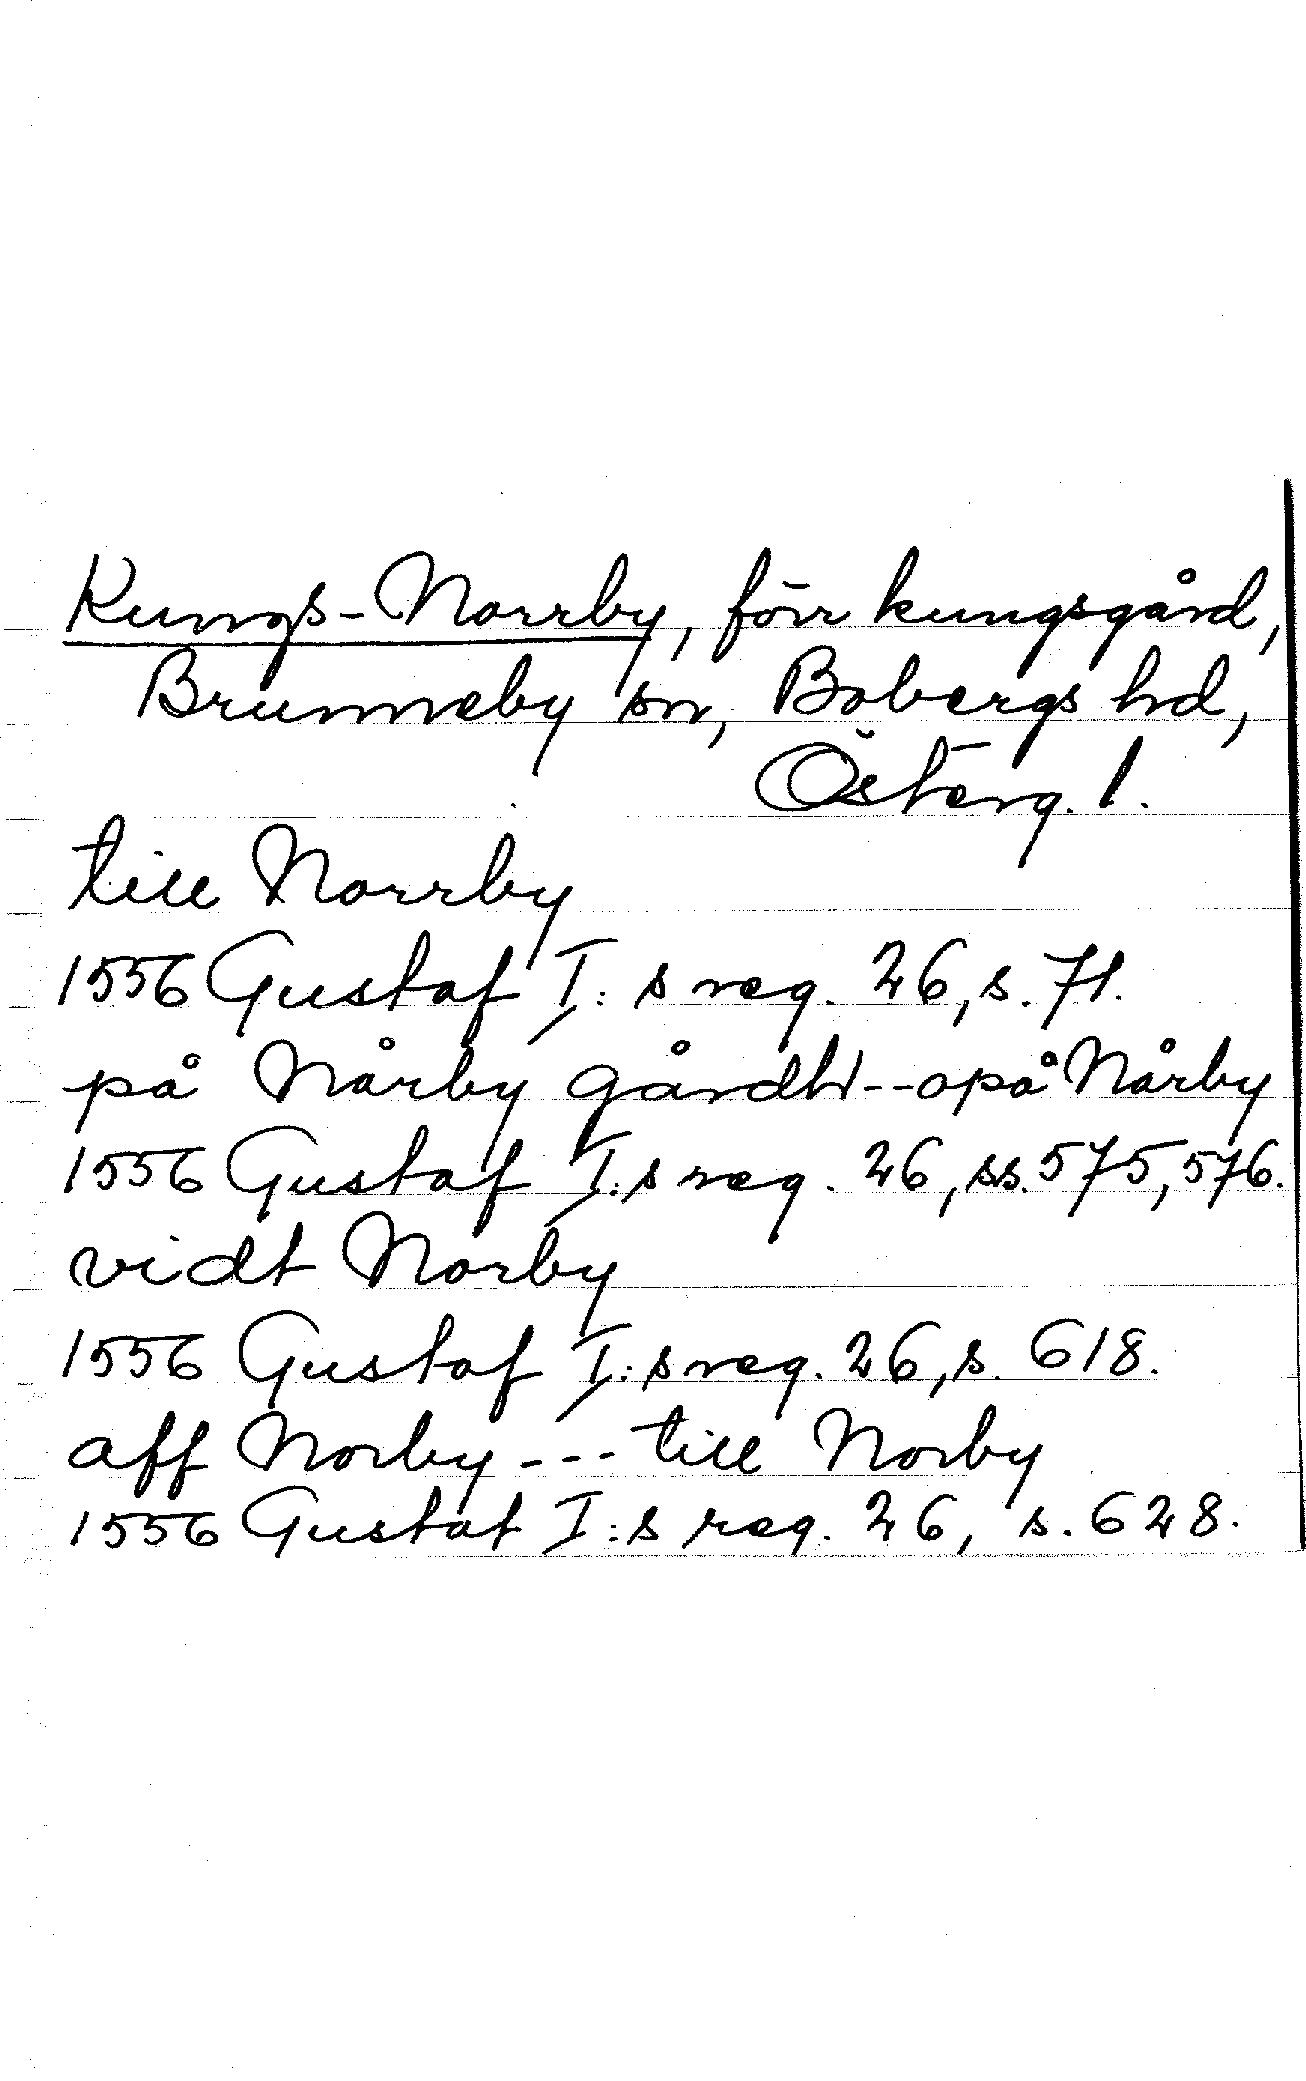 Kungs-Norrby, förr kungsgård,
Brunneby sn, Bobergs hd,
Österg. l.
till Norrby
1556 Gustaf I:s reg. 26, s. 71.
på Nårby gårdh -- opå Nårby
1556 Gustaf I:s reg. 26, ss. 575, 576.
vidt Norby
1556 Gustaf I:s reg. 26, s. 618.
aff Norby --- till Norby
1556 Gustaf I:s reg. 26, s. 628.